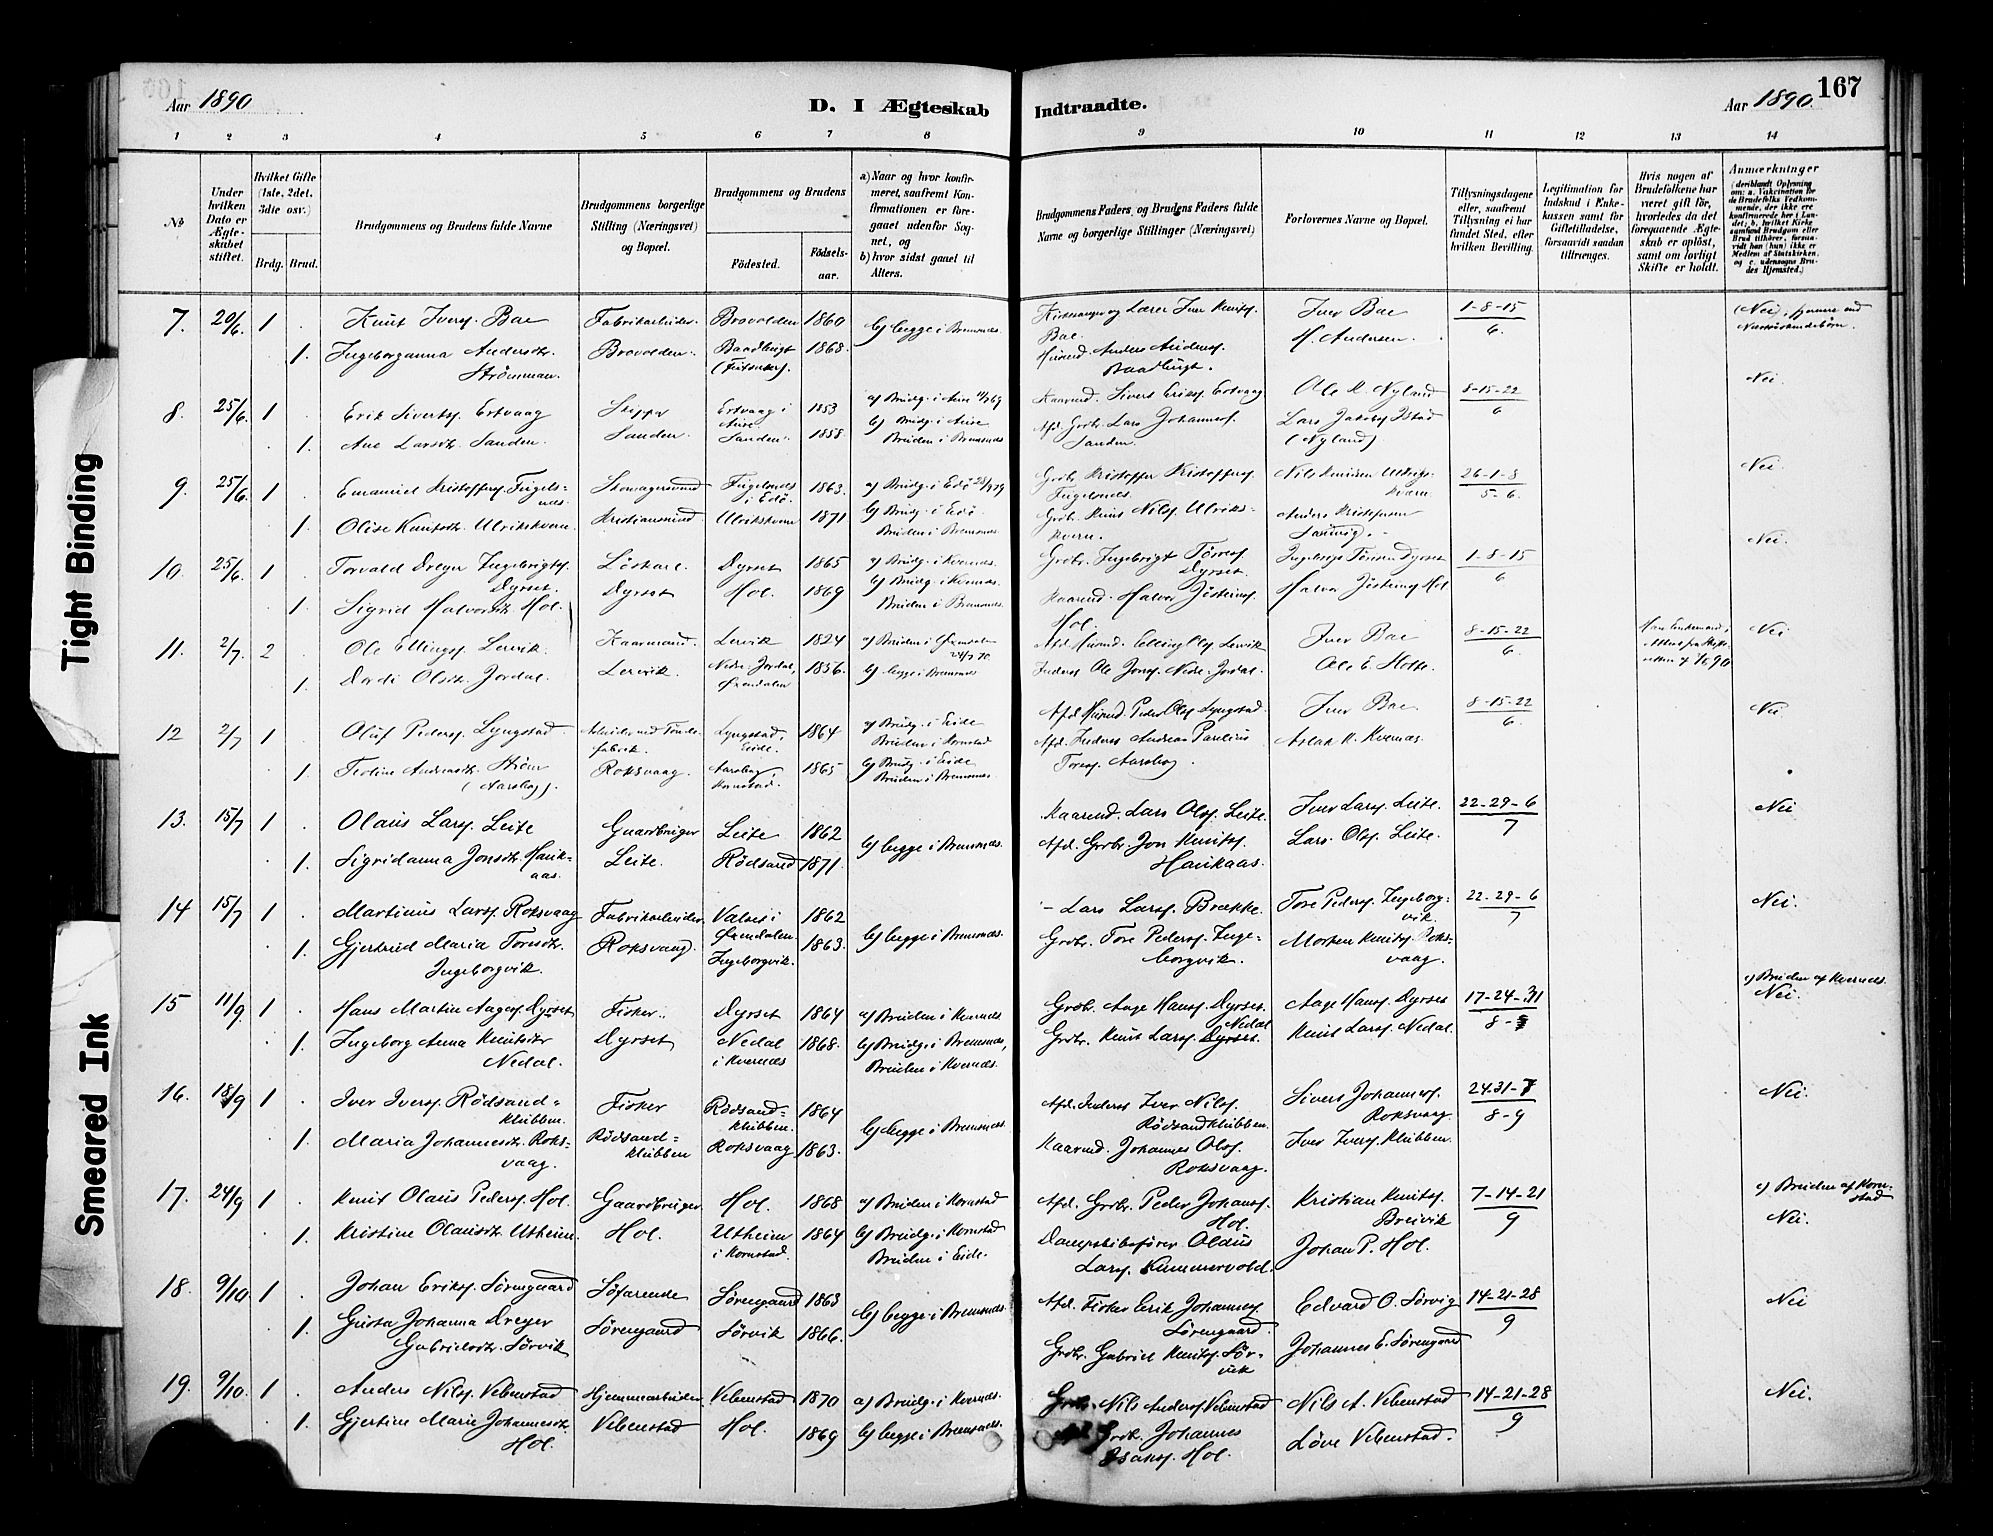 167
Aar 1890
D. I Ægteskab Indtraadte.
Aar 1890.
1 2 3 4 5 6 7 8 9 10 11 12 13 14
№
Under hvilken Dato er Ægteskabet stiftet.
Hvilket Gifte (1ste, 2det, 3die osv.)
Brdg. Brud.
Brudgommens og Brudens fulde Navne
Brudgommens borgerlige Stilling (Næringsvei) og Bopæl.
Brudgommens og Brudens
Födested.
Födselsaar.
a) Naar og hvor konfirmeret, saafremt Konfirmationen er foregaaet udenfor Sognet, og
b) hvor sidst gaaet til Alters.
Brudgommens Faders og Brudens Faders fulde Navne og borgerlige Stillinger (Næringsvei)
Forlovernes Navne og Bopæl.
Tillysningsdagene eller, saafremt Tillysning ei har fundet Sted, efter hvilken Bevilling.
Legitimation for Indskud i Enkekassen samt for Giftetilladelse, forsaavidt saadan tiltrænges.
Hvis nogen af Brudefolkene har været gift før, hvorledes da det foregaaende Ægteskab er opløst, samt om lovligt Skifte er holdt.
Anmærkninger
7. 20/6 1 . Knut Ivers. Bae Fabrikarbeider Brovolden 1860 b) begge i Bremsnes. Kirkesanger og Lærer Iver Knuts. Bae. Iver Bae 1-8-15/6. (Nei)
1. Ingeborganna Andersdtr. Strömman. Brovolden. 1868. Husmd. Anders Anders. M. Andersen.
8. 25/6 1 . Erik Siverts. Ertvaag Skipper Ertvaag i Aure 1853 a) Brudg. i Aure b) Brudg. i Aure Kaarmd. Sivert Eriks. Ertvaag Ole K. Nyland 8-15-22/6 Nei.
1. Ane Larsdtr. Sanden. Sanden. Sanden. 1858. Bruden i Bremsnes Afd. Grdbr. Lars Johannes. Sanden. Lars Jakobs. (Nyland)
9. 25/6 1 . Emanuel Kristoffers. Fugelsnes. Fugelsnes i Edö 1863. a) Brudg. i Edö b) Brudg. i Edö Grdbr. Kristoffer Kristoffers. Fugelsnes. Nils Knudsen 26-1-8/5-6. Nei
1. Olise Knutsdtr. Ulrikskvern. Kristiansund Ulrikskvern 1871 Bruden i Bremsnes Grdbr. Knut Nils. Ulrikskvern. Anders
10. 25/6 1 . Torvald Dreyer Ingebrigts. Dyrset. Löskarl. Dyrset 1865 a) Brudg. i Kvernes. b) Brudg. i Kvernes. Grdbr. Ingebrigt Dyrset. Dyrset 1-8-15/6 Nei.
1. Sigrid Halvorsdtr. Hol. Dyrset Hol. 1869 Bruden i Bremsnes Kaarmd. Halvor Jösteins. Hol. Halvor Jösteins. Hol
11. 2/7. 2 . Ole Ellings. Lervik Kaarmand. Lervik 1824 a) Bruden i Öxendalen Afd. Husmd. Elling Ols. Lervik Iver Bae 8-15-22/6. Nei
1. Dordi Olsdtr. Jordal. Lervik. Nedre Jordal, Öxendalen 1836. b) begge i Bremsnes Inderst Ole Jons. Nedre Jordal. Ole E. Holte.
12 2/7 1 . Oluf Peders. Lyngstad Lyngstad, Eide. 1864 a) Brudg. i Eide Bruden i Kornstad Afd. Husmd. Peder Ols. Lyngstad. Iver Bae 8-15-22/6. Nei
1. Andreasdtr. Ström (Aarsbog). Roksvaag. Aarsbog, Kornstad. 1865 b) Brudg. i Eide Bruden i Bremsnes. Afd. Inderst Andreas Paulius Tores. Aarsbog. Aslak K. Kvernes.
13. 15/7 1 . Olaus Lars. Leite Gaardbruger Leite 1862 b) begge i Bremsnes. Kaarmd. Lars Ols. Leite. Iver Lars. Leite. 22-29-6/7 Nei
1. Sigridanna Jonsdtr. Haukaas. Leite. Rödsand 1871. Afd. Grdbr. Jon Knuts. Haukaas. Lars Ols. Leite.
14 15/7 1 . Martinus Lars. Roksvaag Fabrikarbeider. Valset i Öxendalen. 1862 b) begge i Bremsnes. - Lars Lars. Brække. Tore Peders. Ingeborgvik. 22-29-6/7 Nei.
1. Gjertrud Maria Toresdtr. Ingeborgvik. Roksvaag. Ingeborgvik. 1863. Grdbr. Tore Peders. Ingeborgvik. Morten Knuts. Roksvaag.
15 11/9 1 . Hans Martin Aages. Dyrset Fisker. Dyrset 1864 a) Bruden i Kvernes. Grdbr. Aage Hans. Dyrset. Aage Hans. Dyrset 17-24-31/8 c) Bruden af Kvernes. Nei.
1. Ingeborg Anna Knutsdtr Nedal. Dyrset Nedal i Kvernes 1868. b) Brudg. i Bremsnes, Bruden i Kvernes. Grdbr. Knut Lars. Nedal Knut Lars. Nedal.
16. 18/9 1 . Iver Ivers. Rödsandklubben. Fisker Rödsandklubben. 1864 b) begge i Bremsnes. Afd. Inderst Iver Nils. Rödsandklubben. Sivert Johannes. Roksvaag. 24.31-7/8-9 Nei.
1. Maria Johannesdtr. Roksvaag. Rödsandklubben Roksvaag 1863. Kaarmd. Johannes Ols. Roksvaag. Iver Ivers. Klubben.
17. 24/9 1 . Knut Olaus Peders. Hol. Gaardbruger Hol. 1868 a) Bruden i Kornstad Afd. Grdbr. Peder Johans. Hol. Kristian Knuts. Breivik 7-14-21/9 c) Bruden af Kornstad Nei.
1. Kristine Olausdtr. Utheim. Hol. Utheim i Kornstad. 1864 b) Brudg. i Kornstad Bruden i Eide. Dampskibsförer Olaus Lars. Kummervold. Johan P. Hol.
18. 9/10 1 . Johan Eriks. Sörengaard Söfarende Sörengaard 1863 b) begge i Bremsnes. Afd. Fisker Erik Johannes. Sörengaard. Edvard O. Sörvig 14-21-28/9 Nei
1. Gusta Johanna Dreyer Gabrielsdtr. Sörvik Sörengaard Sörvik 1866. Grdbr. Gabriel Knuts. Sörvik Johannes E. Sörengaard
19. 9/10. 1 . Anders Nils. Vebenstad Hjemmearbeider Vebenstad 1870 a) Brudg. i Kvernes. Grdbr. Nils Anders. Vebenstad Nils A. Vebenstad 14-21-28/9 Nei.
1. Gjertine Marie Johannesdtr. Hol. Vebenstad Hol. 1869 b) begge i Bremsnes. Grdbr. Johannes Isaks. Hol. Löve Vebenstad.
Tight Binding
Smeared Ink